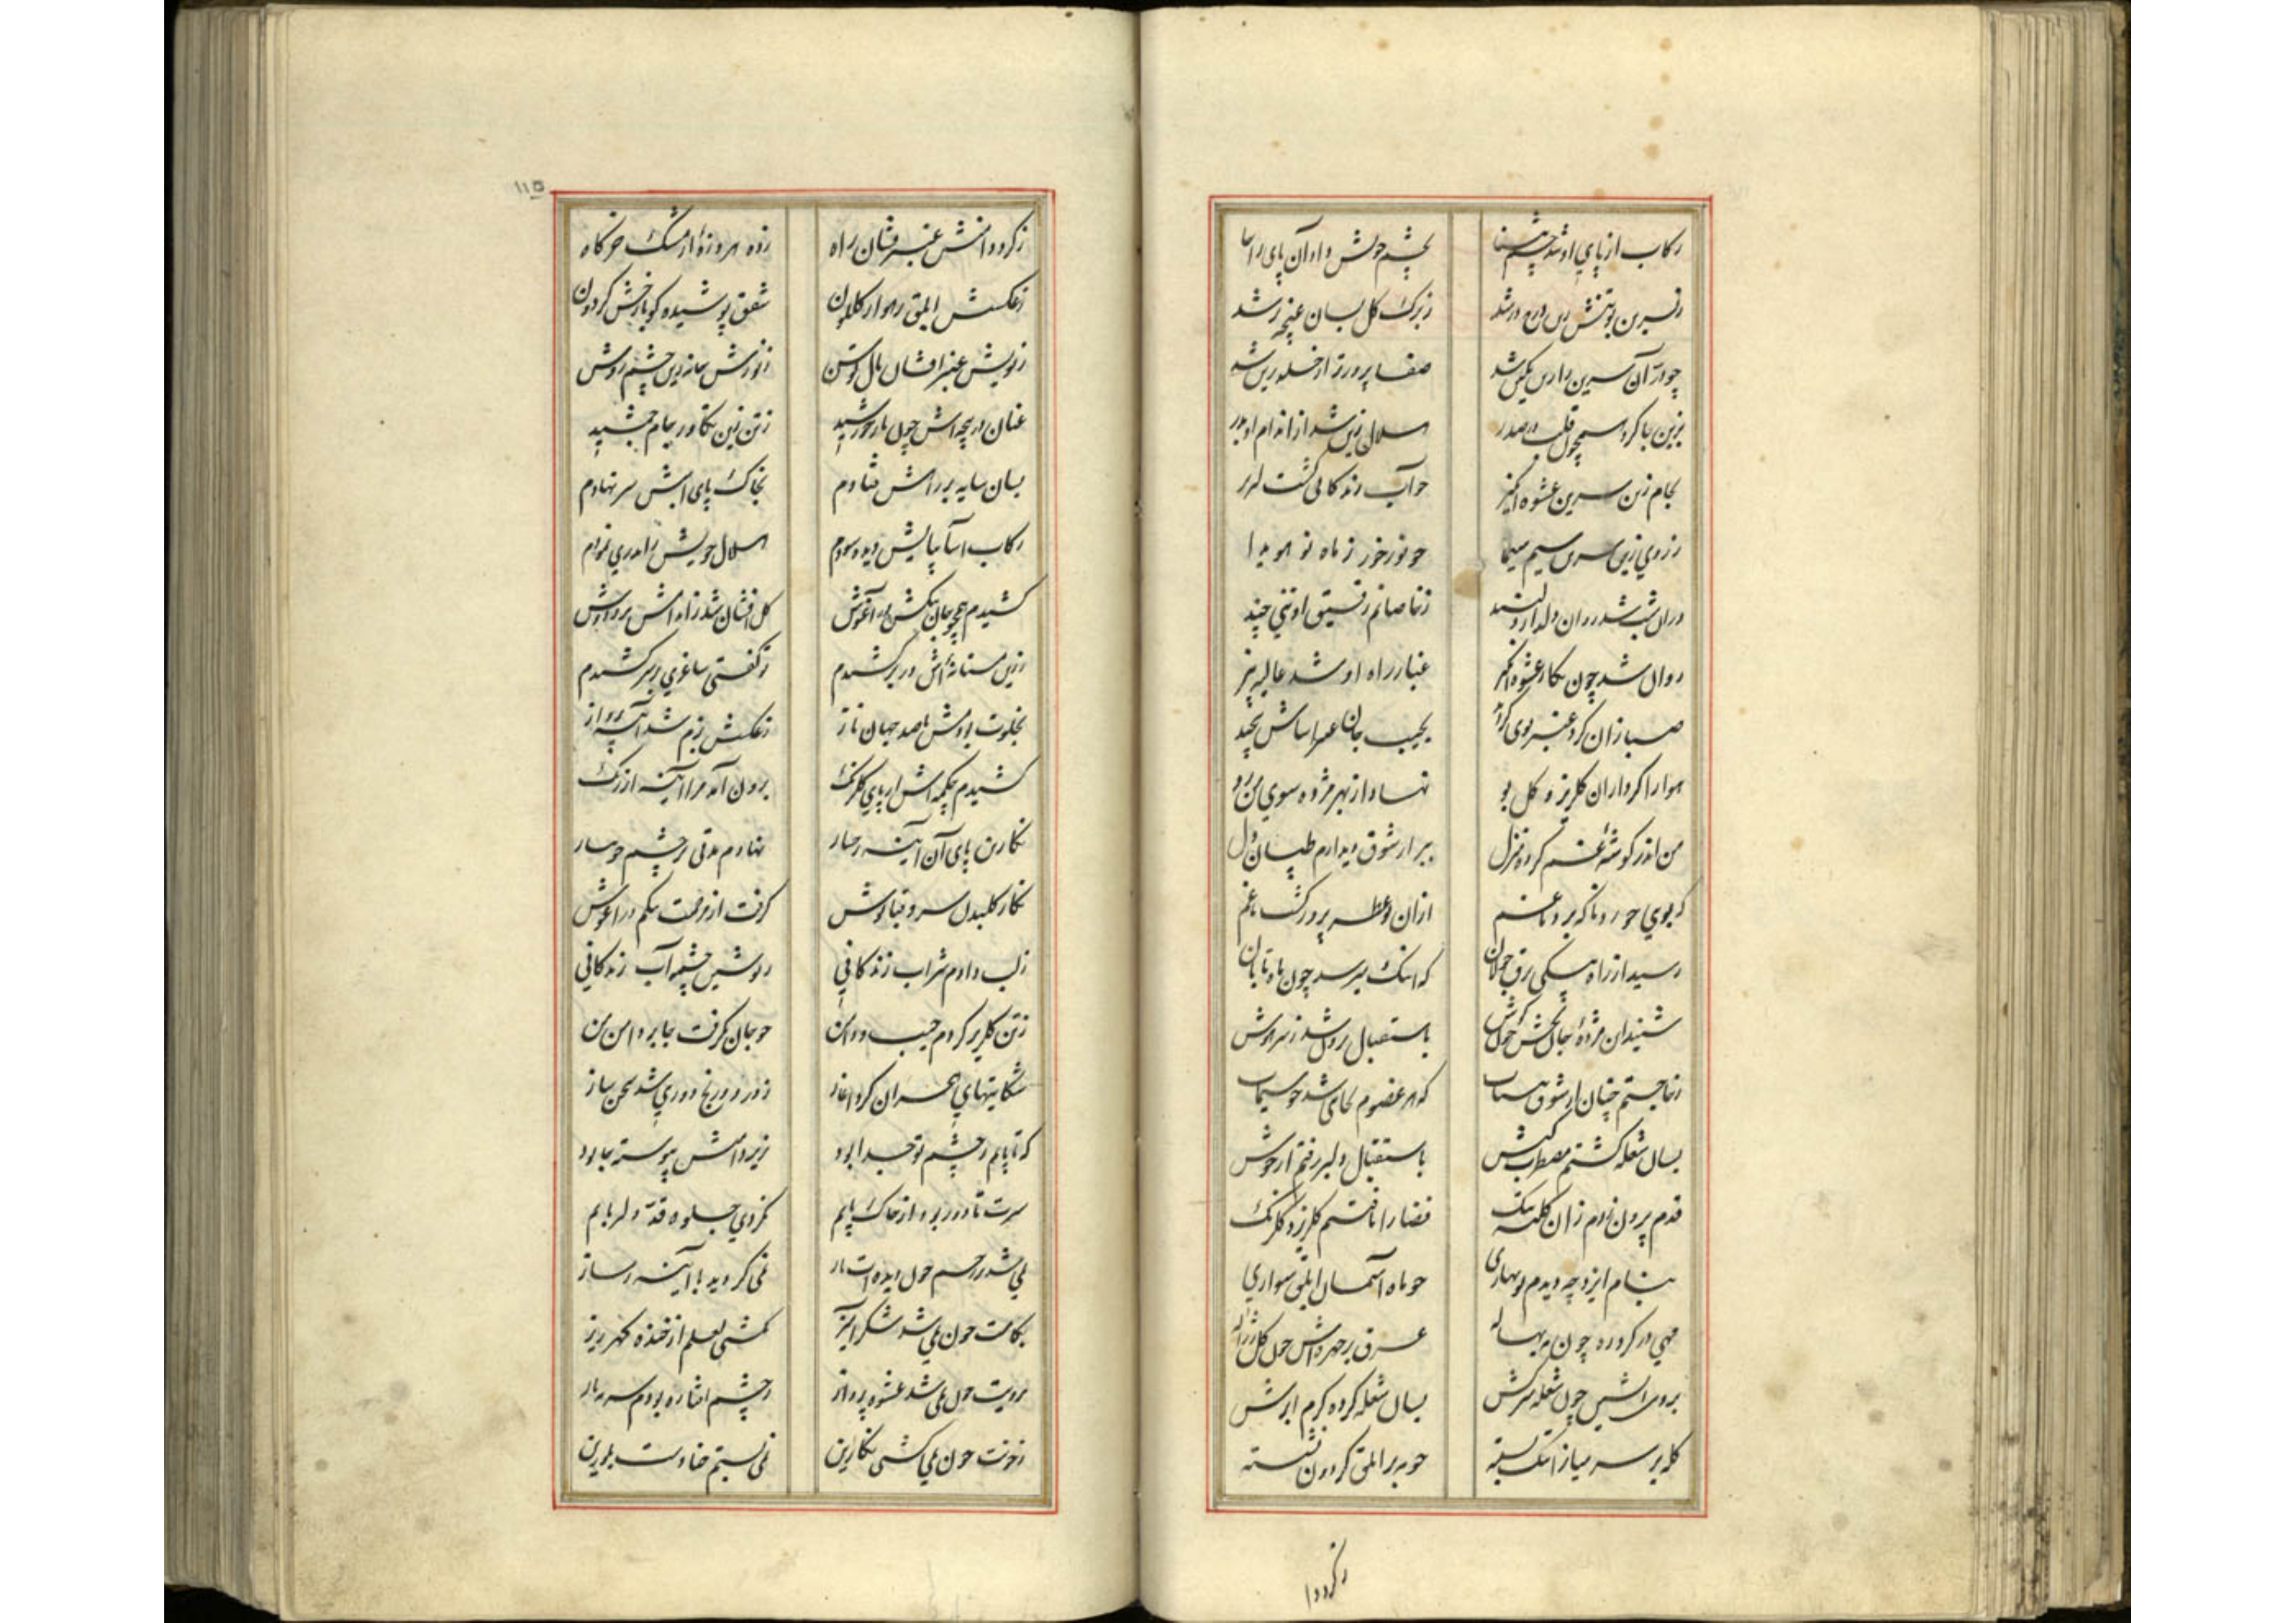 رکاب از پای او شد چشم بینا بچشم خویش داد آن پای را جا
ز نسرین تنش زین در شد ز برک کل بسان غنچه زر شد
چو در آن نسرین شد صفا پرور تر از خلد برین شد
بزین جا کرد همچون قلب در صدر هلال زین شد از اندام او بدر
لجام زین نسرین عشوه انکیز چو آب زندکانی کشت لبریز
ز روی زین سرین سیم سیما چو نور خور ز ماه نو هویدا
در آن شب شد روان ز خاصانم رفیق او تنی چند
روان شد چون نکار عشوه انکیز غبار راه او شد عالیه بیز
صبا زان کرد عنبر بوی بجیب جان
هوا را کرد از آن کلریز و کل بو نهاد از بهر مژده سوی من رو
من اندر کوشه غم کرده منزل ببر از شوق دیدارم طپان دل
که بوی از آن عطر پرور کشت
رسید از راه پیکی برق جولان که اینک میرسد چون ماه تابان
شنید آن مژده جان بخش چون کوش باستقبال شد ز سر هوش
ز جا جستم چنان از شوق بیتاب که هر عضوم بجای شد چو سیماب
بسان شعله کشتم مضطرب باستقبال دلبر رفتم از خویش
قدم بیرون زدم زان کلبه تنک فضا را یافتم کلریز و کلرنک
بنام ایزد چه دیدم نوبهاری چو ماه آسمان ابلق سواری
مهی در کرد ره چون مه بهاله عرق بر چهره اش چون کل ژاله
بروی آتشین چون شعله سرکش بسان شعله کرده کرم ابرش
کله بر سر میان را تنک بسته چو مه بر ابلق کردون نشسته
ز کرد دا
۱۱۵
ز کرد دامنش عنبر فشان راه زده هر ذره از مشک خرکاه
ز عکسش ابلق رهوار کلکون شفق پوشیده کویا رخش کردون
ز بویش عنبر افشان یال توسن ز نورش خانه زین چشم روشن
عنان در پنجه اش چون تار خورشید ز تن زین تکاور جام جمشید
بسان سایه بر راهش فتادم بخاک پای ابرش سر نهادم
رکاب آسا بپایش دیده سودم هلال خویش را بدری نمودم
کشیدم همچو جان تنکش در آغوش کل افشان شد ز اندامش بر و دوش
ز زین مستانه اش در بر کشیدم تو کفتی ساغری بر سر کشیدم
بخلوت بردمش با صد جهان ناز ز عکسش بزم شد آئینه پرداز
کشیدم چکمه اش از پای کلرنک برون آمد مرا آئینه از زنک
نکارین پای آن آئینه رخسار نهادم مدتی بر چشم خونبار
نکار کلبدن سرو قباپوش کرفت از مرحمت تنکم در آغوش
ز لب دادم شراب زندکانی ز نوشین چشمه آب زندکانی
ز تن کلریز کردم جیب و دامن چو جان بکرفت جا بر دامن من
شکایتهای هجران کرد آغاز ز درد و رنج دوری شد سخن ساز
که تا پایم ز چشم تو جدا بود بزیر دامنش پیوسته جا بود
سرت تا دور بود از خاک پایم نکردی جلوه قد دلربایم
نمی شد بر رخم چون دیده ات باز نمی کردید با آئینه دمساز
بکامت چون نمی شد شکر آمیز نکشتی لعلم از خنده کهر ریز
برویت چون نمی شد عشوه پرداز ز چشم
ز خونت چون نمی کشتی نکارین نمی بستم حنا دست بلورین